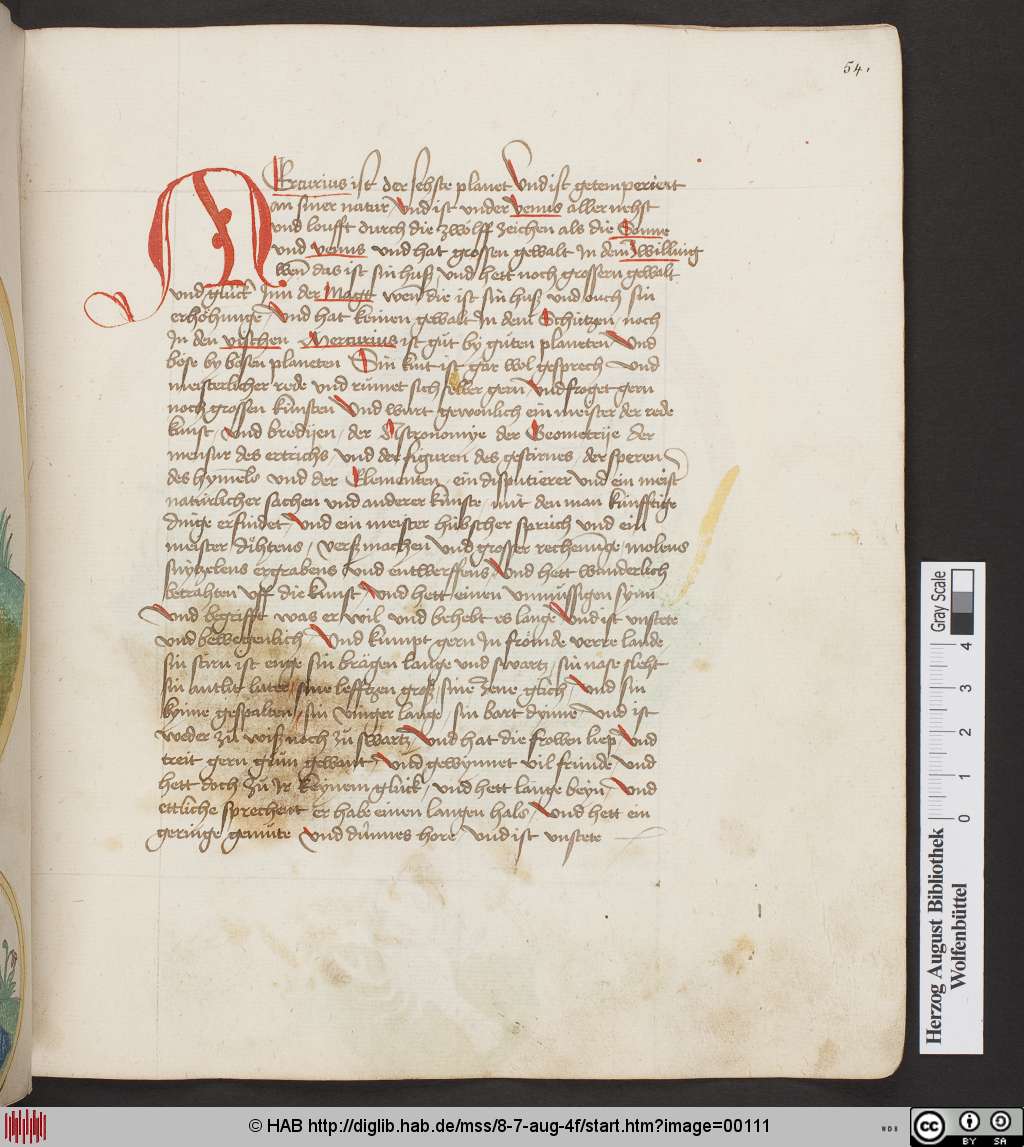 54.
MErcurius ist der sehste planet Vnd ist getemperiert
an siner natur / vnd ist vnder venus aller nehst
vnd loufft durch die zwölff zeichen als die Sonne
vnd venus vnd hat grossen gewalt In dem Zwilling
wen̄ das ist sin huß / vnd hett noch grossern gewalt
vnd glück Inn der Magt wen̄ die ist sin huß vnd ouch sin
erhöhunge / Vnd hat keinen gewalt In dem Schützen / noch
In den vischen Mercurius ist gůt by gůten planeten Vnd
böse by bösen planeten Sin kint ist gar wol gesprech vnd
meisterlicher rede vnd růmet sich selber gern / Vnd froget gern
noch grossen künsten Vnd wurt gewonlich ein meister der rede
kunst / vnd bredijen / der Astronomije der Geometrije der
mensur des ertrichs / vnd der figuren des gestirnes / der speren
des hymels vnd der Elementen / ein disputierer vnd ein meist
natürlicher sachen vnd anderer künste / mit den man künfftige
dinge erfindet / Vnd ein meister hübscher sprüch vnd ein
meister dihtens / verß machen vnd grosser rechenunge molens
snytzelens ergrabens vnd entwerffens / Vnd hett wunderlich
betrahten vff die kunst / vnd hett einen vnmüssigen synn
Vnd begrifft was er wil vnd behebt es lange Vnd ist vnstete
vnd bewegenlich / Vnd kumpt gern In frömde verre lande
sin stirn ist enge sin bragen lange vnd swartz / sin nase sleht
sin antlit luter / sine lefftzen groß / sine zene glich / vnd sin
kynne gespalten / sin vinger lange / sin bart dynne / vnd ist
weder zů wiß noch zů swartz Vnd hat die frowen liep Vnd
treit gern grün gewant / Vnd gewynnet vil fründe vnd
hett doch zů Ir keynem glück / vnd hett lange beyn / Vnd
ettliche sprechent er habe einen langen hals / Vnd hett ein
geringe gemüte vnd dünnes hore / vnd ist vnstete
Gray Scale
0 1 2 3 4
Herzog August Bibliothek
Wolfenbüttel
© HAB http://diglib.hab.de/mss/8-7-aug-4f/start.htm?image=00111
WDB
cc BY SA